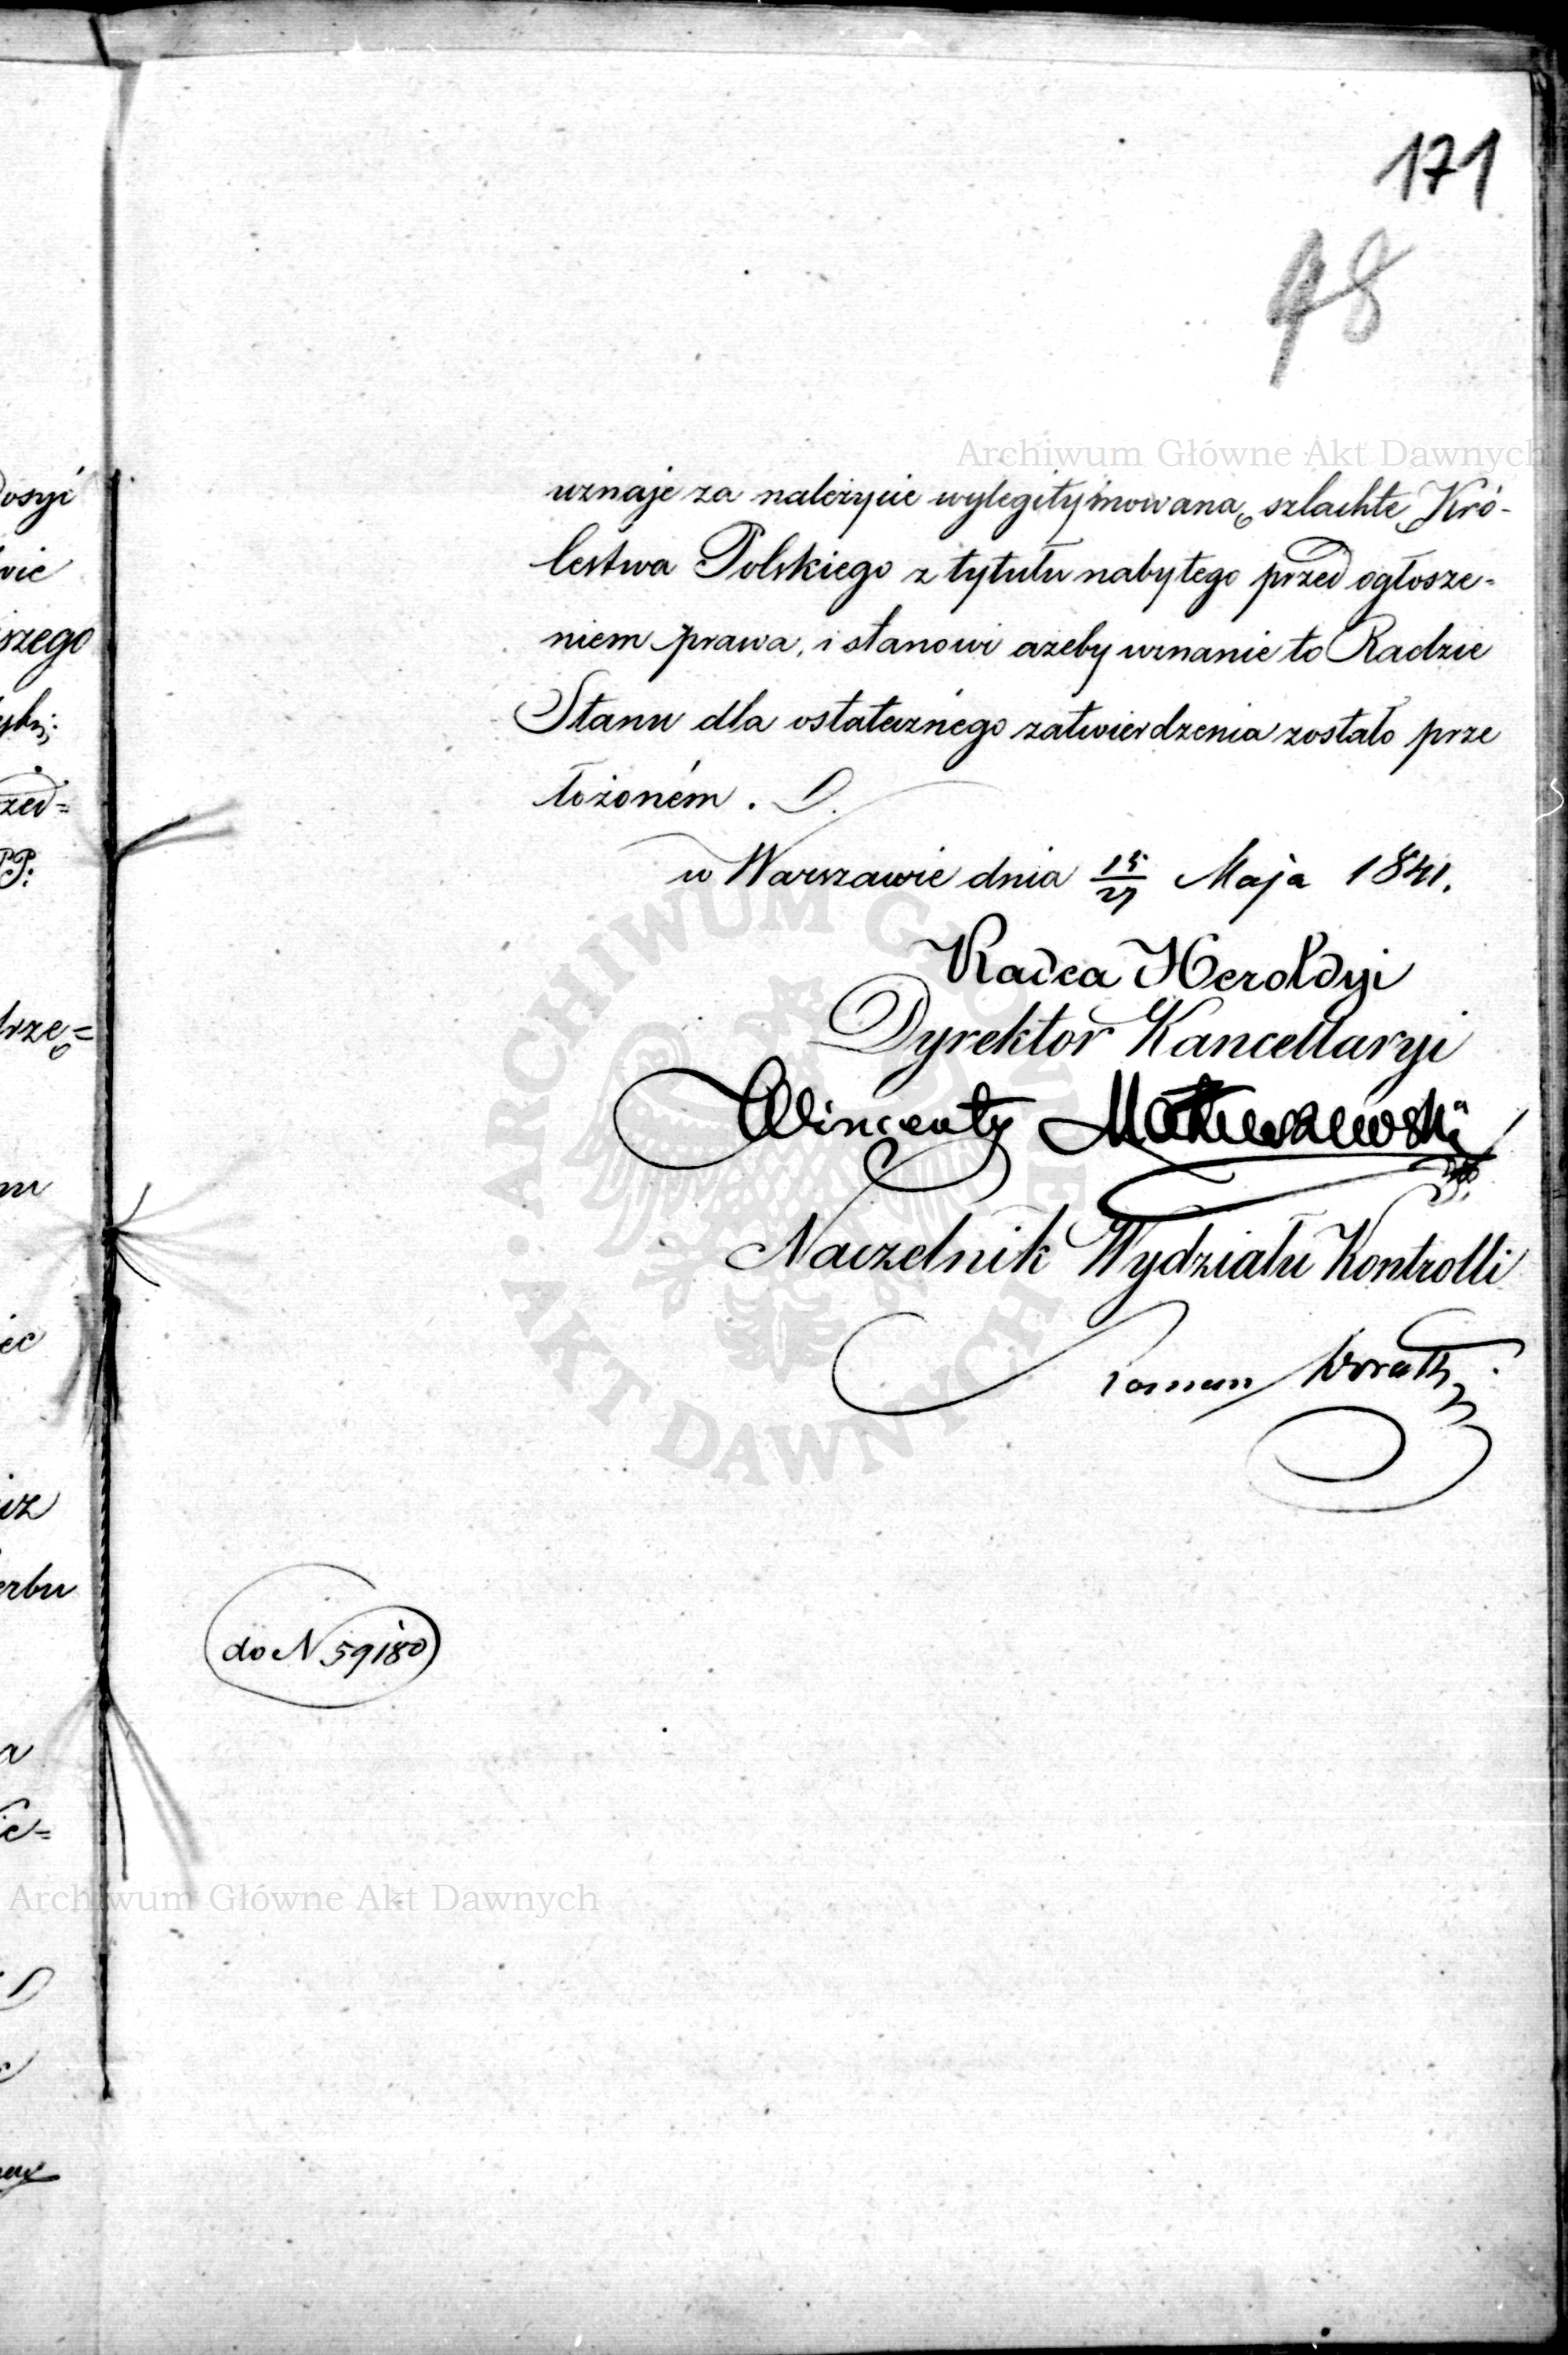 171
48
Archiwum Główne Akt Dawnych
uznaje za należycie wylegitymowaną szlachtę Kró-
lestwa Polskiego z tytułu nabytego przed ogłosze-
niem prawa, i stanowi ażeby uznanie to Radzie
Stanu dla ostatecznego zatwierdzenia zostało prze
łożoném.
w Warszawie dnia 15/27 Maja 1841.
Radca Heroldyi
Dyrektor Kancellaryi
Wincenty Matuszewski
Naczelnik Wydziału Kontrolli
Roman
do N 59180
Archiwum Główne Akt Dawnych
ARCHIWUM GŁÓWNE AKT DAWNYCH
osyć
wie
szego
zed=
PP.
trzę=
m
iec
iż
erbu
a